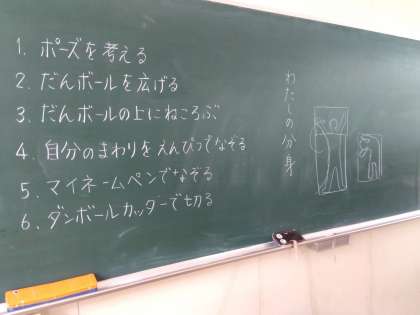 1. ポーズを考える
2. だんボールを広げる
3. だんボールの上にねころぶ
4. 自分のまわりをえんぴつでなぞる
5. マイネームペンでなぞる
6. ダンボールカッターで切る
わたしの分身